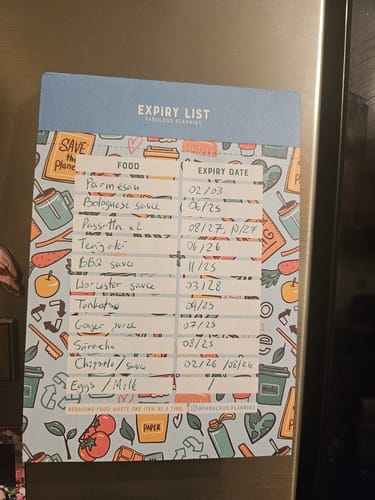 EXPIRY LIST
FABULOUS PLANNING
SAVE the Planet
FOOD EXPIRY DATE
Parmesan 02/03
Bolognese sauce 06/25
Passatta x2 08/27, 10/27
Teriyaki 06/26
BBQ sauce 11/25
Worcester sauce 03/28
Tonkatsu 04/25
Ginger puree 07/25
Sriracha 08/25
Chipotle/sauce 02/26 /08/26
Eggs / Milk
REDUCING FOOD WASTE ONE ITEM AT A TIME. @FABULOUS.PLANNING
PAPER